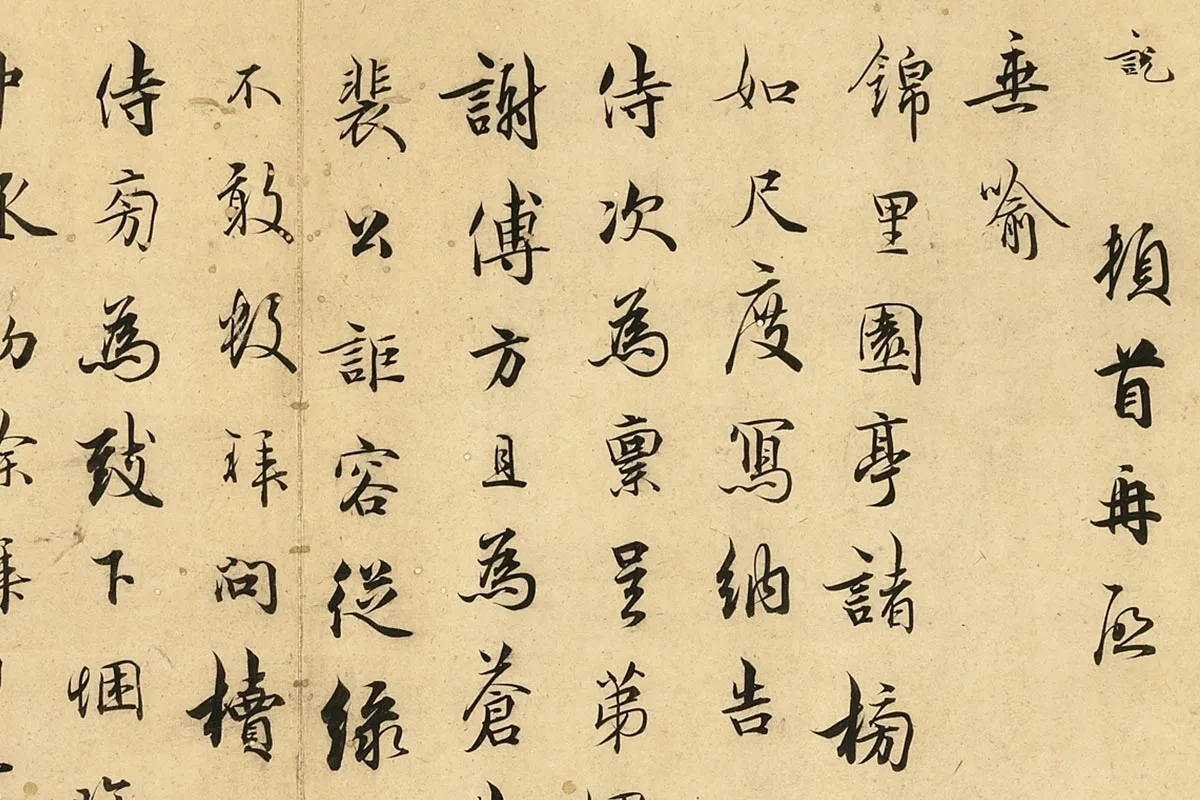 説 頓首再啓
垂喻
錦里園亭諸榜
如尺度寫納告
侍次為稟呈第
謝傅方且為蒼
裴公詎容從綠
不敢輒拜問櫝
侍旁為致下悃